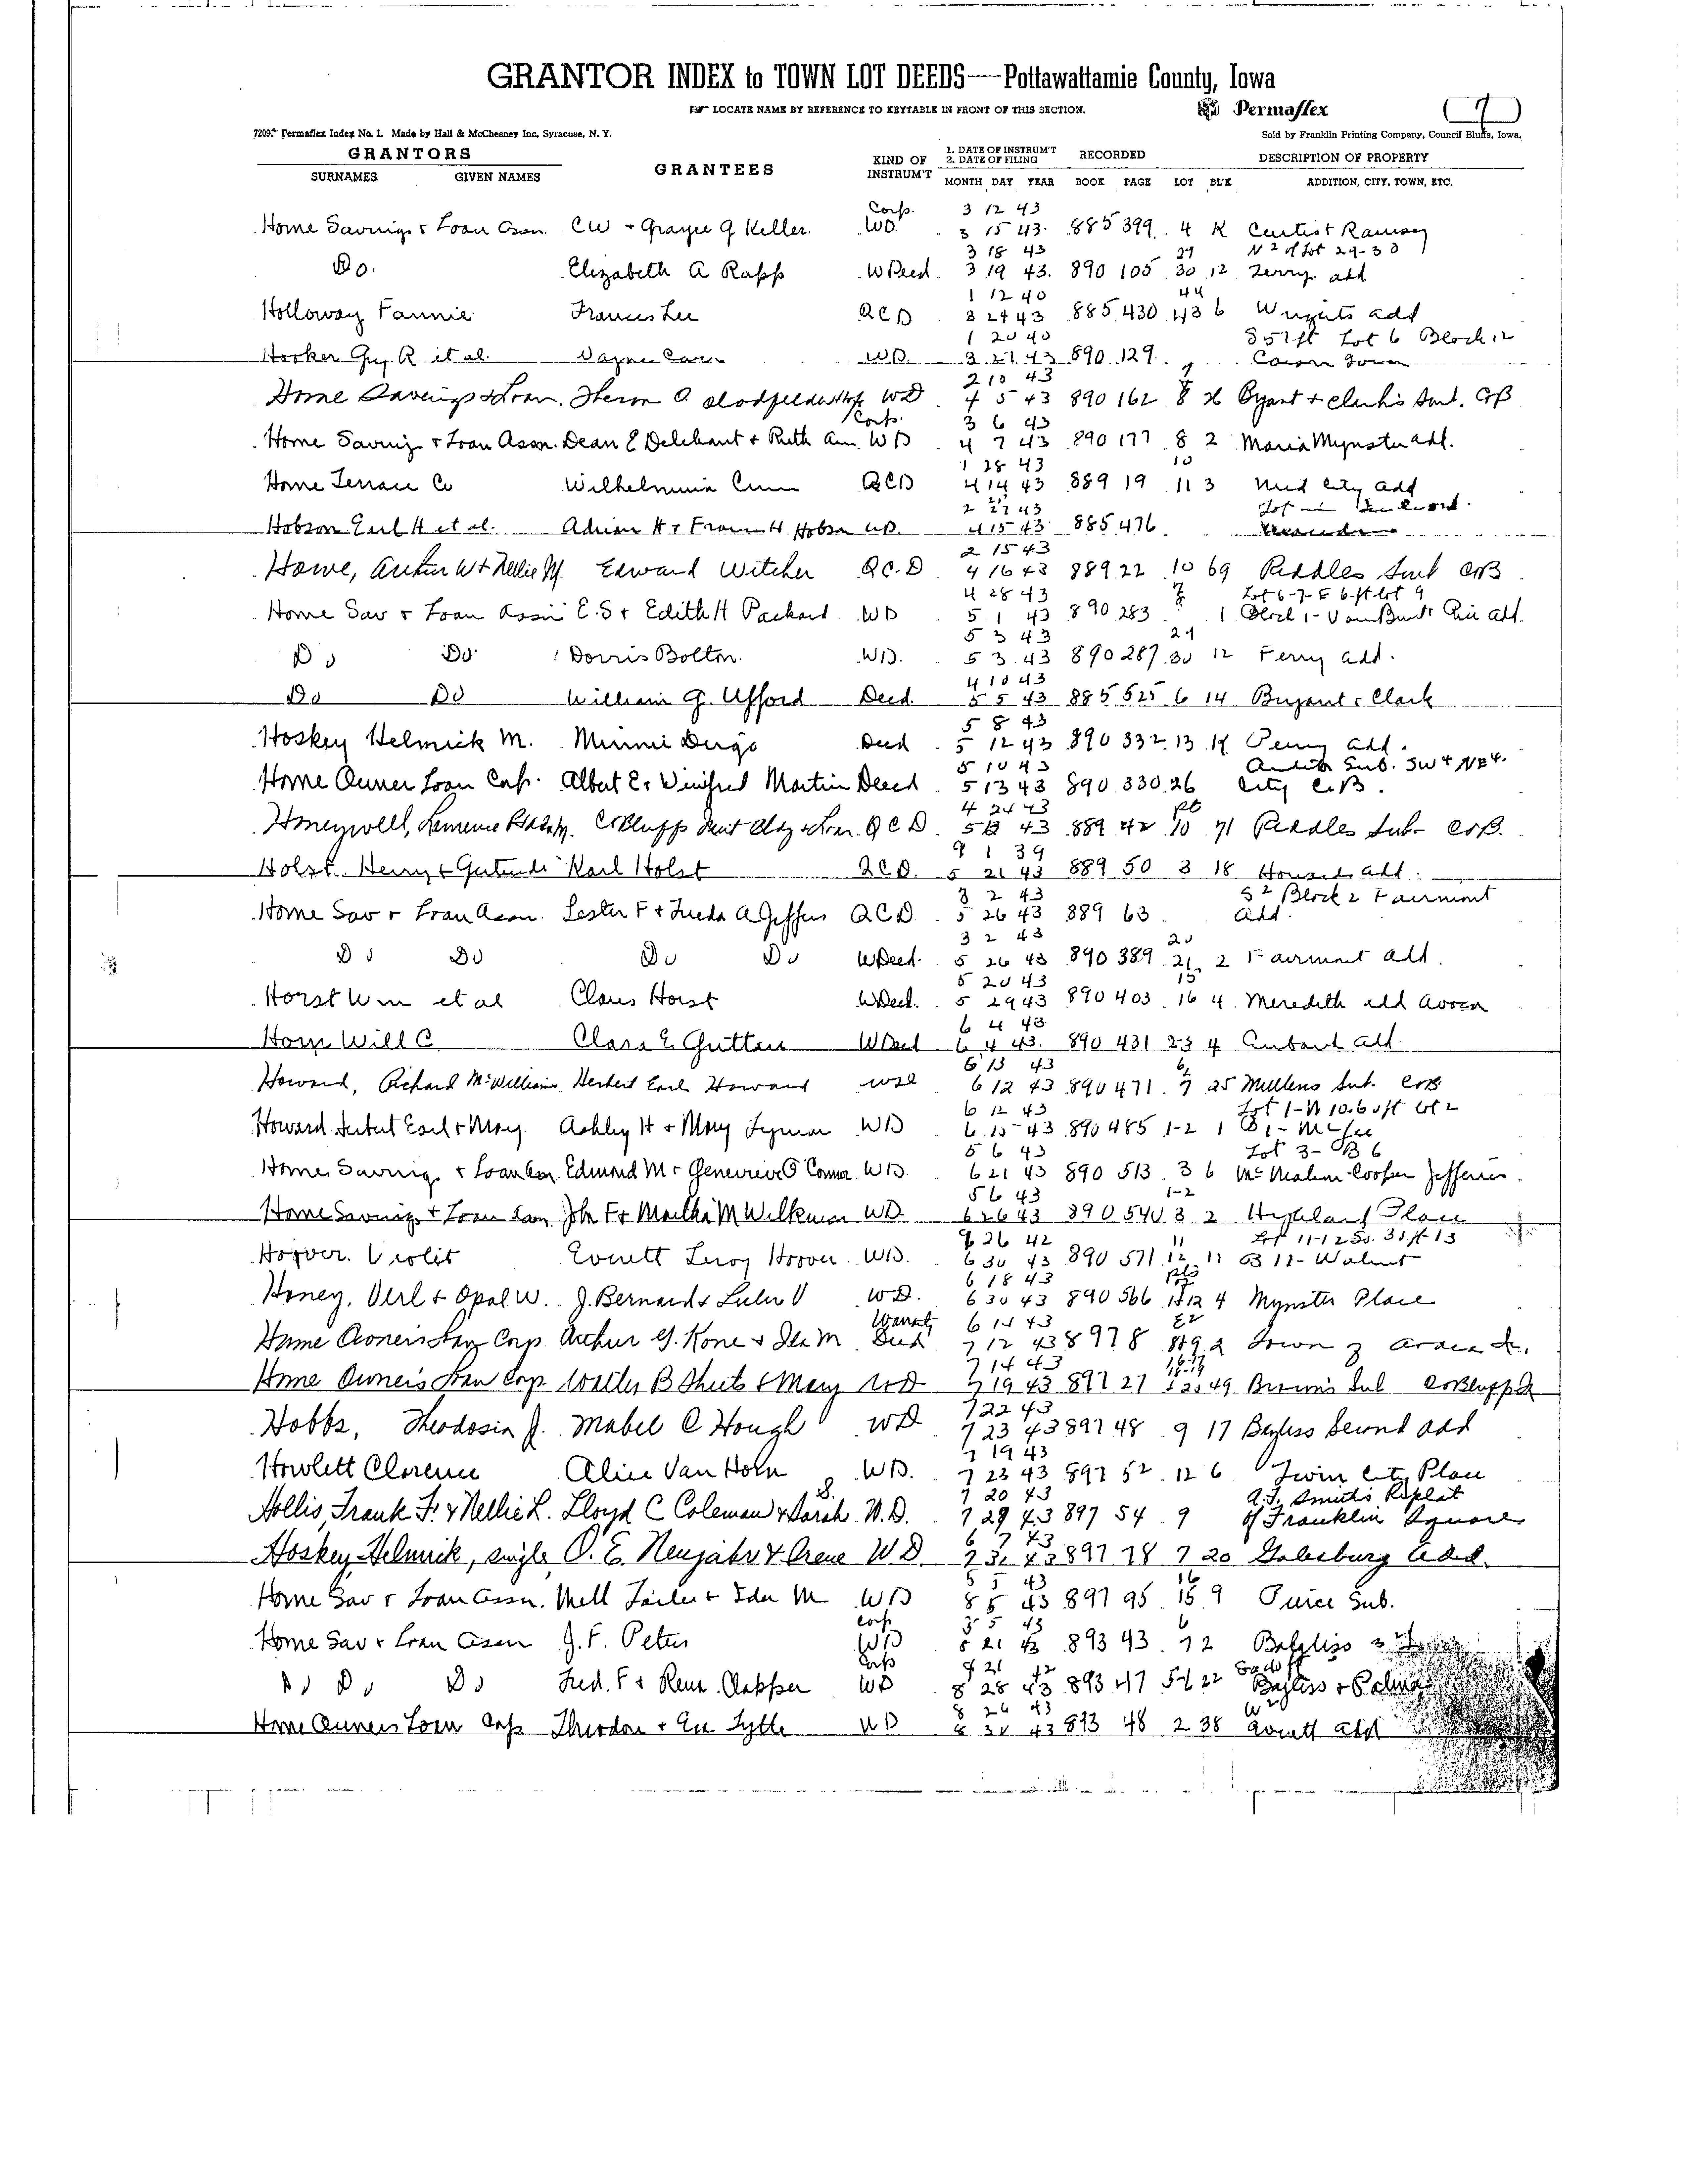 GRANTOR INDEX to TOWN LOT DEEDS—Pottawattamie County, Iowa
☞ LOCATE NAME BY REFERENCE TO KEYTABLE IN FRONT OF THIS SECTION. Permaflex
7
7209. Permaflex Index No. 1. Made by Hall & McChesney Inc, Syracuse, N. Y. Sold by Franklin Printing Company, Council Bluffs, Iowa.
GRANTORS GRANTEES KIND OF INSTRUM'T 1. DATE OF INSTRUM'T 2. DATE OF FILING RECORDED DESCRIPTION OF PROPERTY
SURNAMES GIVEN NAMES MONTH DAY YEAR BOOK PAGE LOT BL'K ADDITION, CITY, TOWN, ETC.
Corp. 3 12 43
Home Savings + Loan Assn. CW + Grayce G Keller. WD. 3 15 43. 885 399 4 K Curtis + Ramsey
3 18 43 29 N 2 of Lot 29-30
Do. Elizabeth A Rapp W Deed. 3 19 43. 890 105 30 12 Ferry add
1 12 40 44
Holloway Fannie Frances Lee QCD 3 24 43 885 430 43 6 Wrights add
1 20 40 S 57 ft Lot 6 Block 12
Hooker Guy R et al. Wayne WD. 3 27 43 890 129. Carson Iowa
2 10 43
Home Savings + Loan. WD 4 5 43 890 162 8 26 Byant + Clark's Sub. CB
Corp. 3 6 43
Home Saving + Loan Assn. Dean E Delehant + Ruth Ann WD 4 7 43 890 177 8 2 Maria Mynster add.
1 28 43 10
Home Terrace Co Wilhelmina QCD 4 14 43 889 19 11 3 Mid City add
2 27 43 Lot in
Hobson Earl H et al. Adrian H + H Hobson WD. 4 15 43 885 476
2 15 43
Howe, Arthur W + Nellie M. Edward Witcher QC.D 4 16 43 889 22 10 69 Riddles Sub CB
4 28 43 Lot 6-7-E 6 ft lot 9
Home Sav + Loan Assn E.S + Edith H Packard. WD 5 1 43 890 283 1 Block 1- add.
5 3 43 29
Do Do Dorris Bolton. WD. 5 3 43 890 287 30 12 Ferry add.
4 10 43
Do Do William G. Ufford Deed. 5 5 43 885 525 6 14 Bryant + Clark
5 8 43
Hoskey Helmick M. Minnie Deed 5 12 43 890 332 13 14 Perry add.
5 10 43 Sub. SW 4 NE 4.
Home Owner Loan Corp. Albert E + Winifred Martin Deed 5 13 43 890 330 26 City C.B.
4 24 43 pt
Honeywell, CBluffs QCD 5 13 43 889 42 10 71 Riddles Sub- CB.
9 1 39
Holst Henry + Gertrude Karl Holst QCD. 5 21 43 889 50 3 18 Howards add.
3 2 43 S 2 Block 2 Fairmont
Home Sav + Loan Assn. Lester F + Frieda A Jeffers QCD 5 26 43 889 63 add.
3 2 43 20
Do Do Do Do W Deed. 5 26 43 890 389 21 2 Fairmont add.
5 20 43 15
Horst Wm et al Claus Horst W Deed. 5 29 43 890 403 16 4 Meredith add Avoca
6 4 43
Horn Will C Clara E W Deed 6 4 43. 890 431 23 4 add.
6 13 43 6
Howard, Richard McWilliams Herbert Earl Howard WD 6 12 43 890 471 7 25 Mullens Sub. CB
6 12 43 Lot 1-N 10.6 ft lot 2
Howard Herbert Earl + May. Ashley H + Mary Lyman WD 6 15 43 890 485 1-2 1 B 1- McGee
5 6 43 Lot 3- B 6
Home Saving + Loan Assn. Edmund M + Genevieve O'Connor WD. 6 21 43 890 513 3 6 McMahon Cooper Jefferies
5 6 43 1-2
Home Saving + Loan Assn John F + Martha M Wilkinson WD. 6 26 43 890 540 3 2 Highland Place
9 26 42 11 Lot 11-12 So. 31 ft 13
Hoover. Violet Everett Leroy Hoover WD. 6 30 43 890 571 12 11 B 11- Walnut
6 18 43 pts
Honey, Verl + Opal W. J. Bernard + Lulu V WD. 6 30 43 890 566 4 Mynster Place
Warranty 6 14 43 E2
Home Owners Loan Corp. Arthur G. Kone + Ida M Deed 7 12 43 897 8 8+9 2 Town of
7 14 43 16-17 18-19
Home Owner's Loan Corp Walter B Sheets + Mary WD 7 19 43 897 27 20 49 Brown's Sub CoBluffs
7 22 43
Hobbs, Theodosia J. Mabel C Hough WD 7 23 43 897 48 9 17 Bayliss Second add
7 19 43
Howlett Clarence Alice Van Horn WD. 7 23 43 897 52 12 6 Twin City Place
S. 7 20 43 A.J. Smith's Replat
Hollis, Frank F. + Nellie L. Lloyd C Coleman + Sarah W.D. 7 29 43 897 54 9 of Franklin Square
6 7 43
Hoskey, Helmick, single O. E. Neujahr + Irene W.D. 7 31 43 897 78 7 20 Galesburg Add.
5 5 43 16
Home Sav + Loan Assn. + Ida M WD 8 5 43 897 95 15 9 Sub.
Corp 3 5 43 6
Home Sav + Loan Assn J. F. Peter WD 8 21 43 893 43 7 2
Corp 8 21 42
Do Do Do Fred. F + Rena Clapper WD 8 28 43 893 47 22 Bayliss + Palmer
8 26 43 W 2
Home Owners Loan Corp Theodore + Lytle WD 8 31 43 893 48 2 38 add